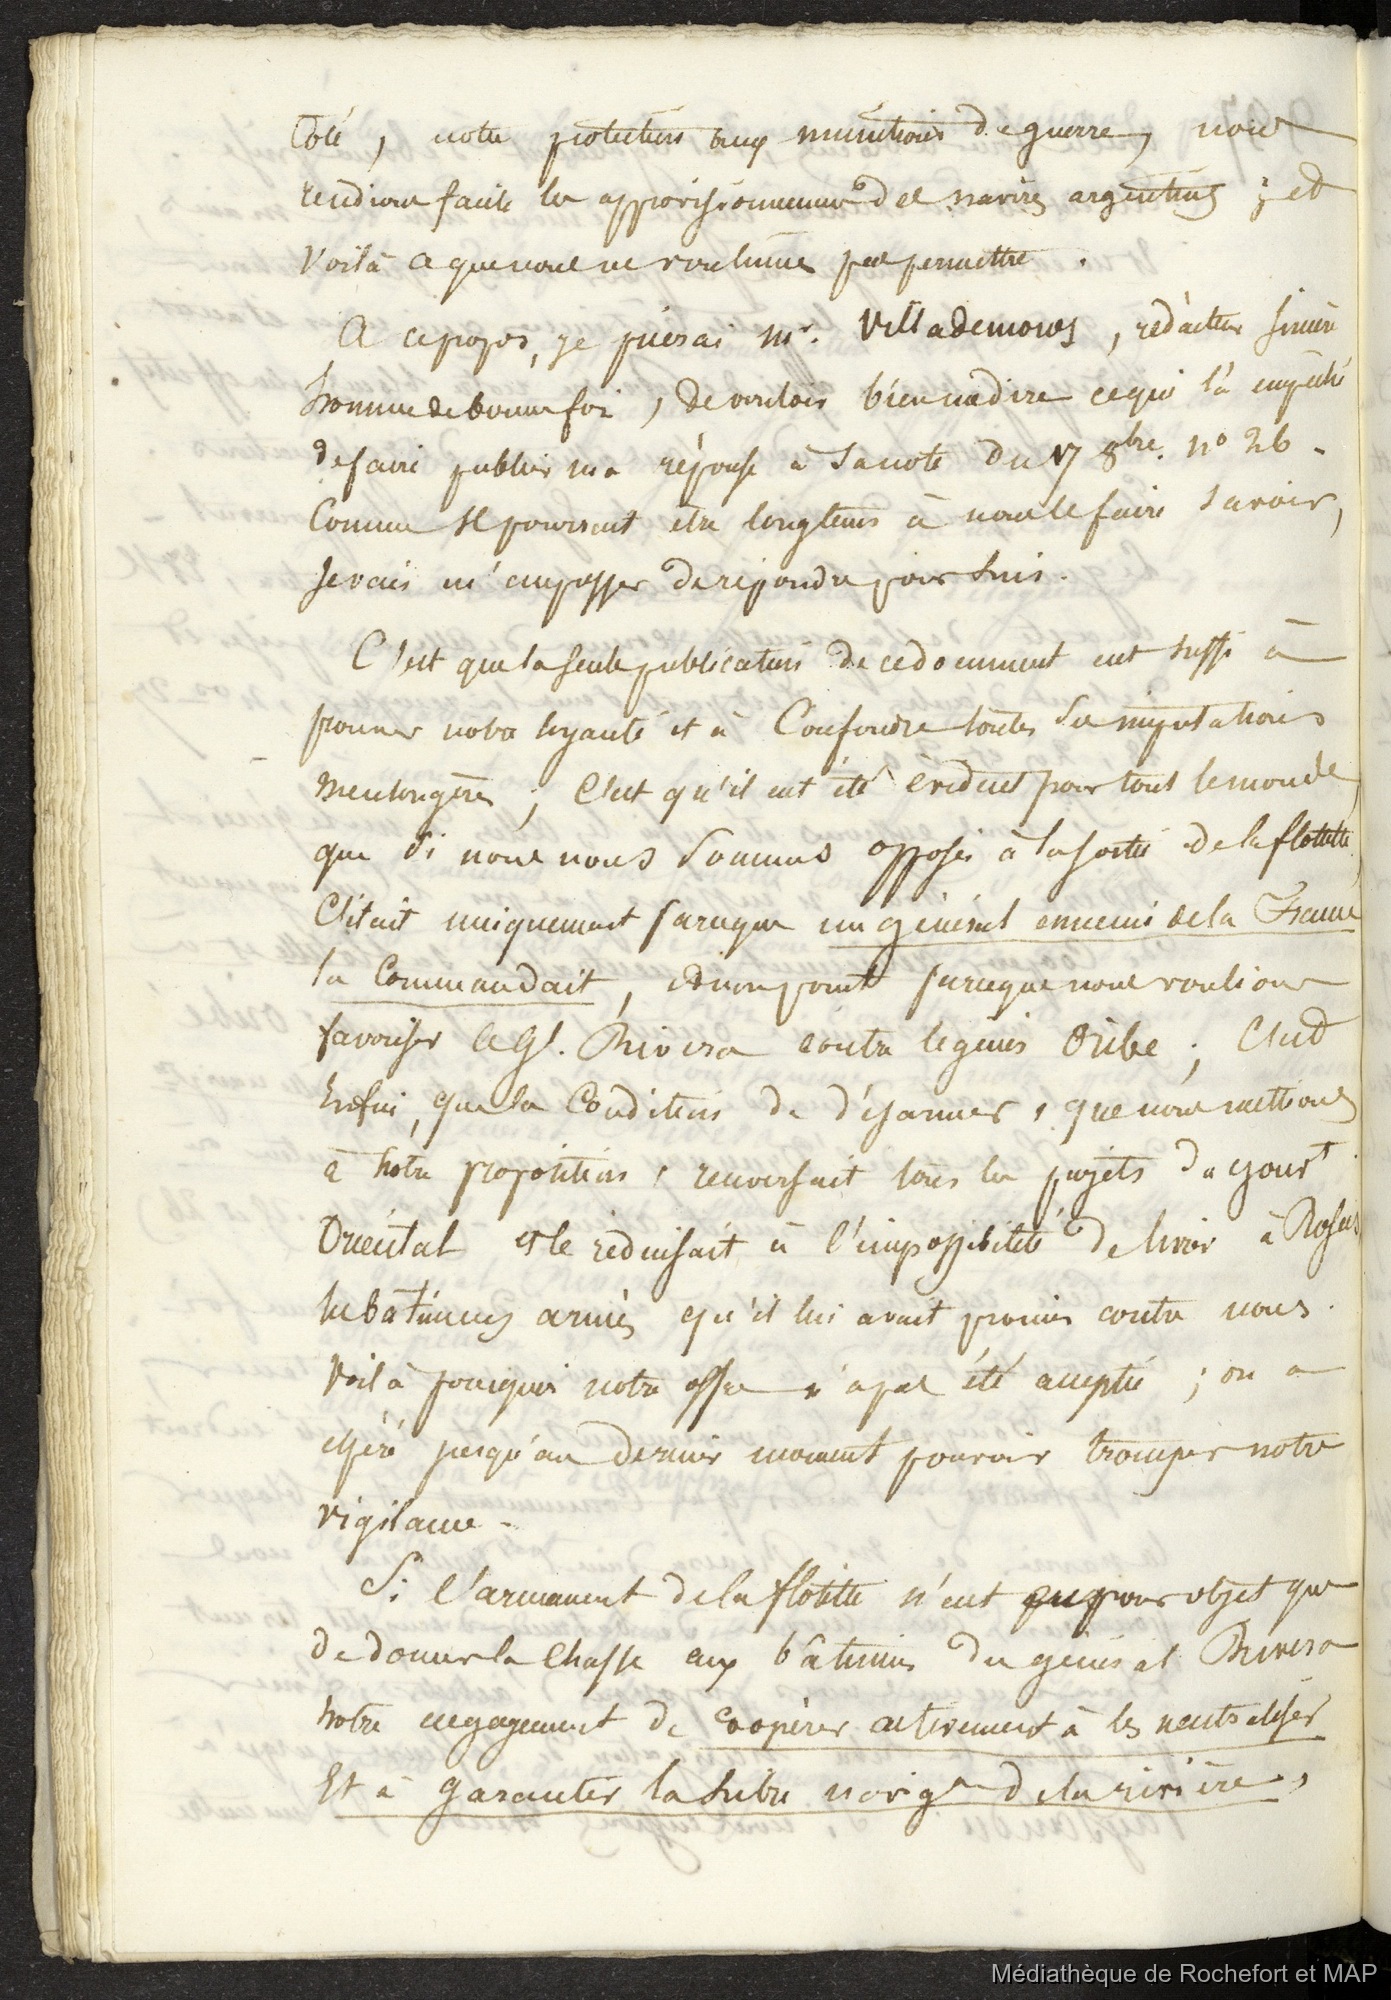 Côté, notre protection aux munitions de guerre, nous
rendions facile les approvisionnemens des navires argentins ; et
Voilà ce que nous ne voulumes pas permettre.
A ce propos, je prierai Mr. Villademoros, rédacteur sincère
homme de bonne foi, de vouloir bien me dire ce qui l'a empêché
de faire publier ma réponse à sa note du 17 8bre. n° 26 -
Comme il pourrait être longtems à nous le faire savoir,
je vais m'empresser de répondre pour lui.
C'est que la seule publication de ce document eut suffi à
prouver notre loyauté et à Confondre toutes ses imputations
mensongères ; C'est qu'il eut été évident pour tout le monde,
que si nous nous sommes opposés à la sortie de la flotille
C'était uniquement parceque un général ennemi de la France
la Commandait, et non point parceque nous voulions
favoriser le Gl. Rivera contre le génér Oribe ; C'est
Enfin, que la Condition de désarmer, que nous mettions
à notre proposition, renversait tous les projets du gouvt
Oriental et le réduisait à l'impossibilité de livrer à Rosas
les bâtimens armés qu'il lui avait promis contre nous.
Voilà pourquoi notre offre n'a pas été acceptée ; on a
espéré jusqu'au dernier moment pouvoir tromper notre
vigilance -
Si l'armement de la flotille n'eut eu pour objet que
de donner la Chasse aux bâtimens du général Rivera
notre engagement de coopérer activement à les neutraliser
Et à garantir la libre navigon de la rivière,
Médiathèque de Rochefort et MAP